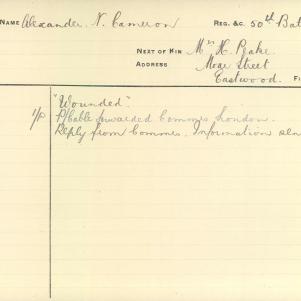 NAME Alexander. N. Cameron REG. &C. 50th Bat
NEXT OF KIN Mrs H. Peake
ADDRESS Moge Street
Eastwood.
"Wounded"
P/Cable forwarded Commes London.
Reply from Commes. Information sen